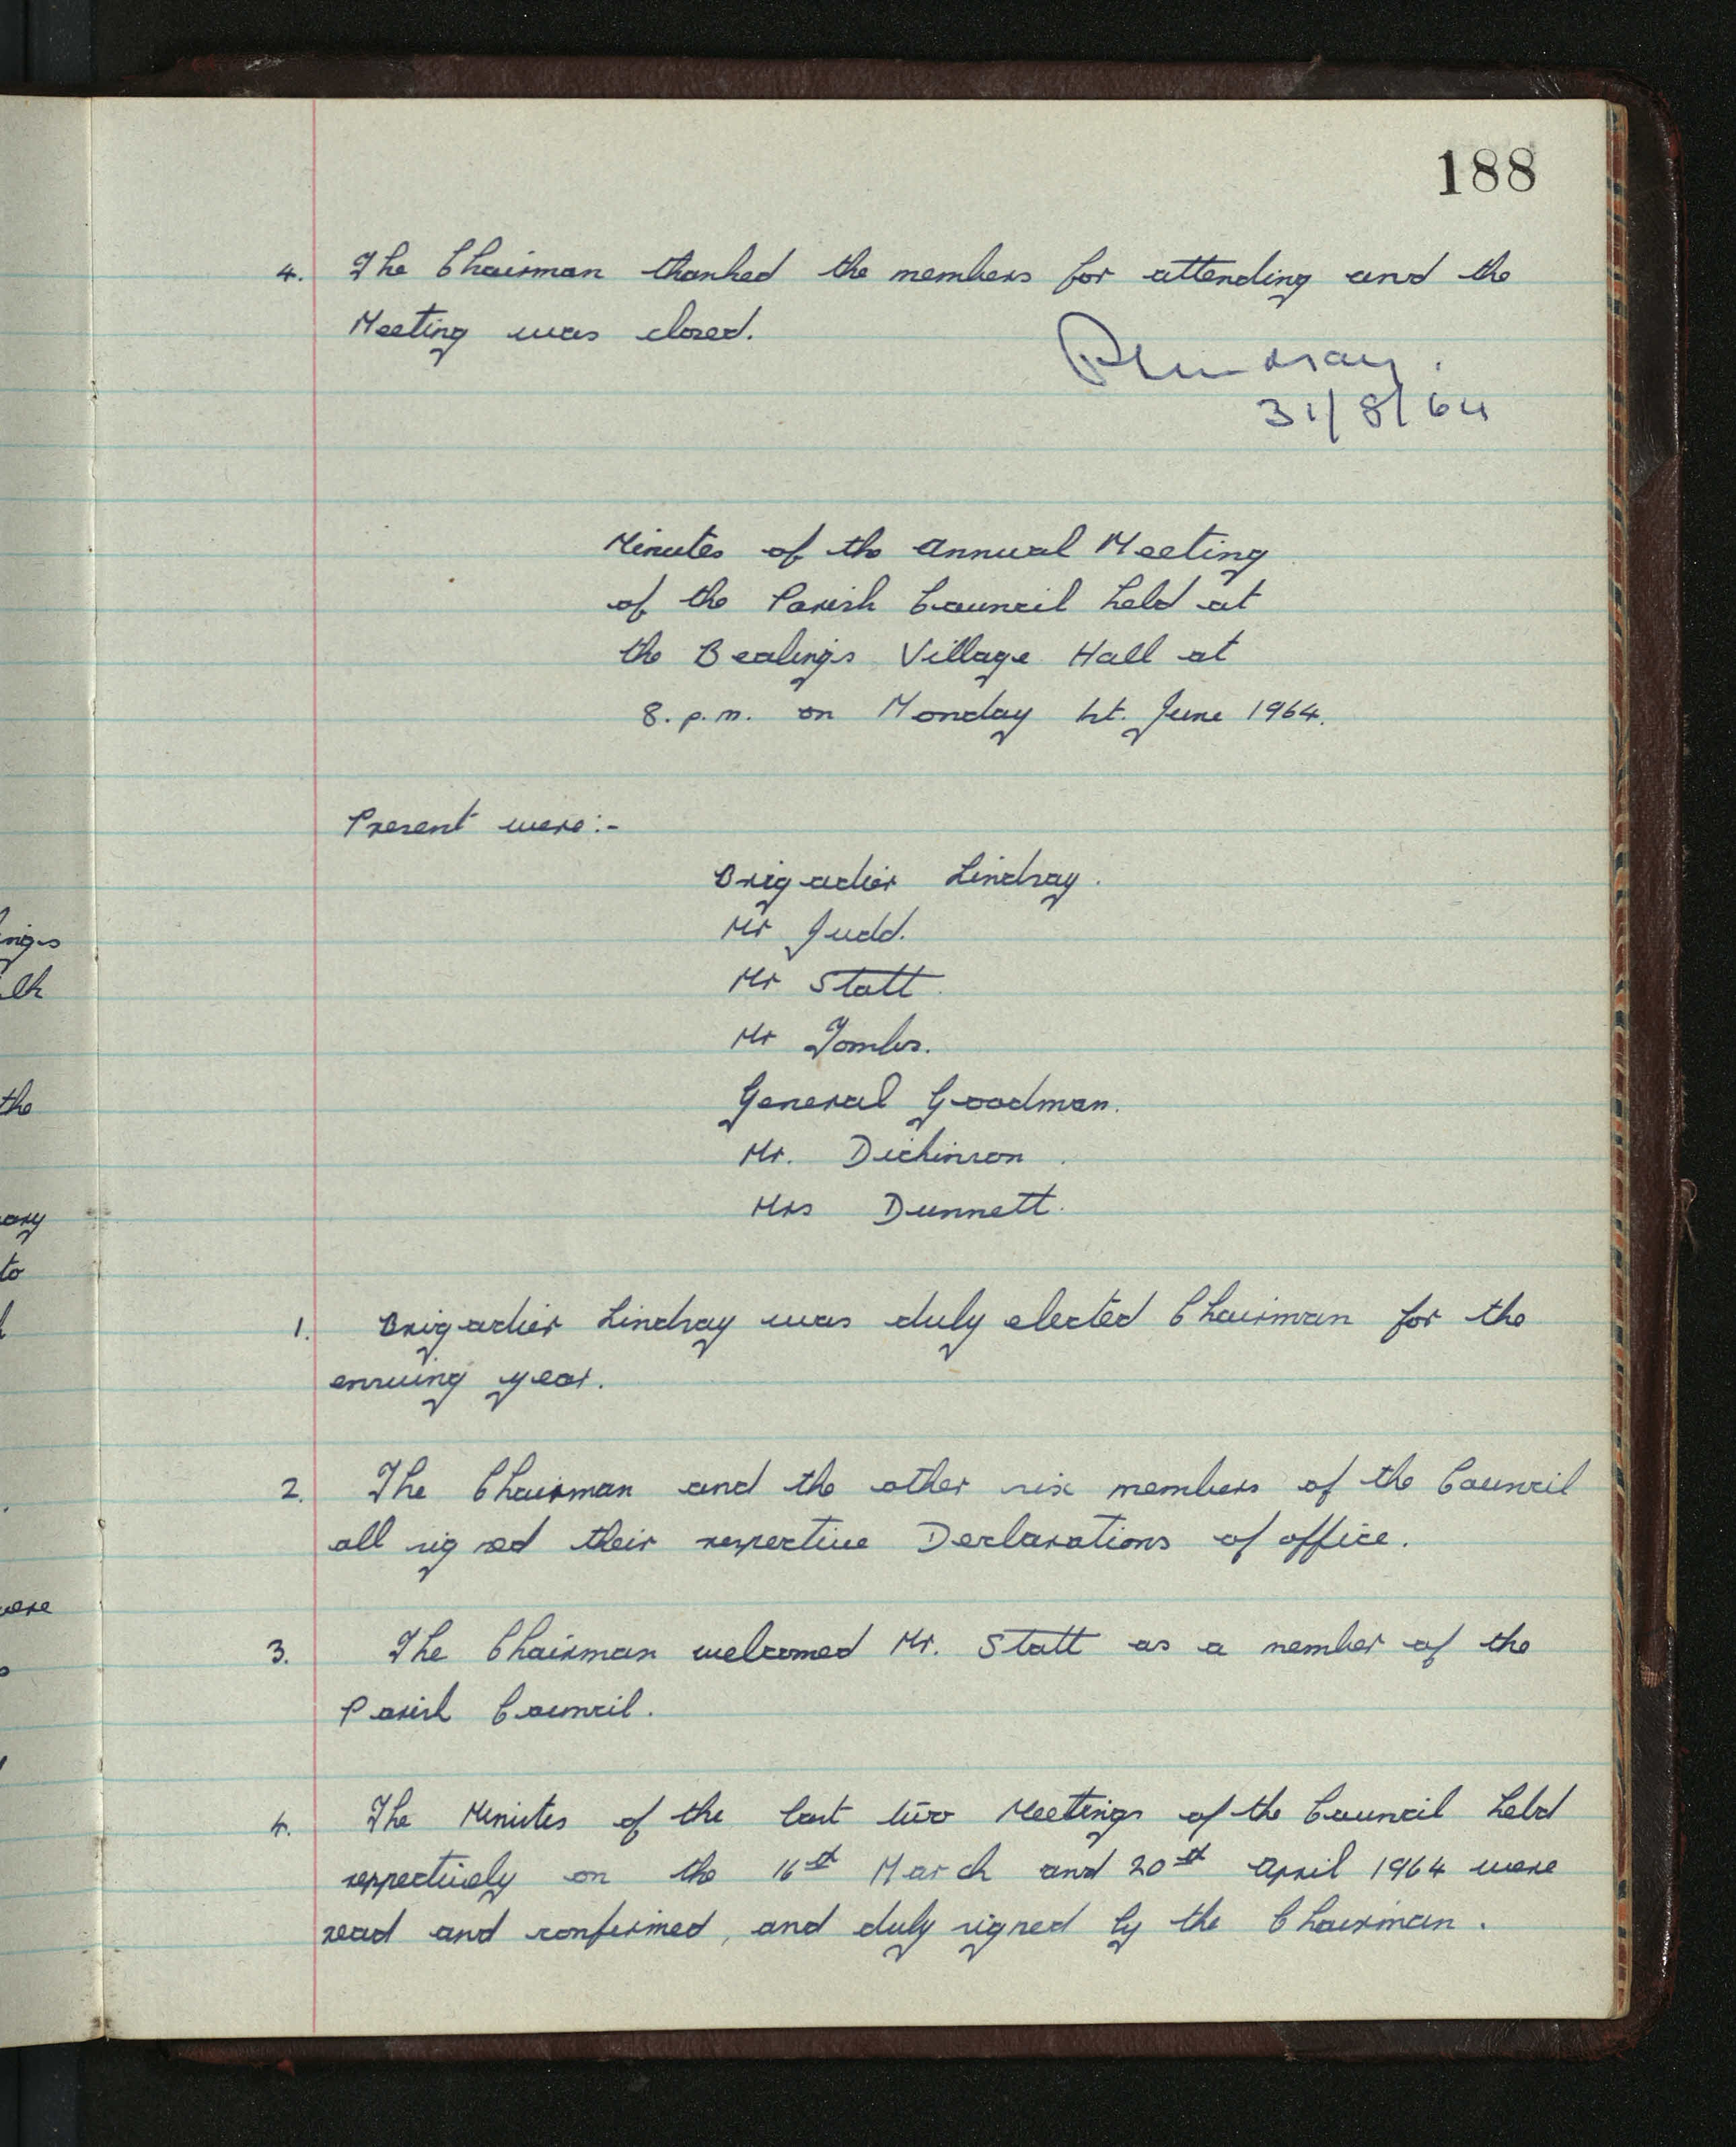 188
4. The Chairman thanked the members for attending and the
Meeting was closed.
31/8/64
Minutes of the Annual Meeting
of the Parish Council held at
the Bealings Village Hall at
8. p.m. on Monday 1st. June 1964.
Present were:-
Brigadier Lindsay.
Mr Judd.
Mr Statt.
Mr Tombs.
General Goodman.
Mr. Dickinson.
Mrs Dunnett.
1. Brigadier Lindsay was duly elected Chairman for the
ensuing year.
2. The Chairman and the other six members of the Council
all signed their respective Declarations of office.
3. The Chairman welcomed Mr. Statt as a member of the
Parish Council.
4. The Minutes of the last two Meetings of the Council held
respectively on the 16th March and 20th April 1964 were
read and confirmed, and duly signed by the Chairman.